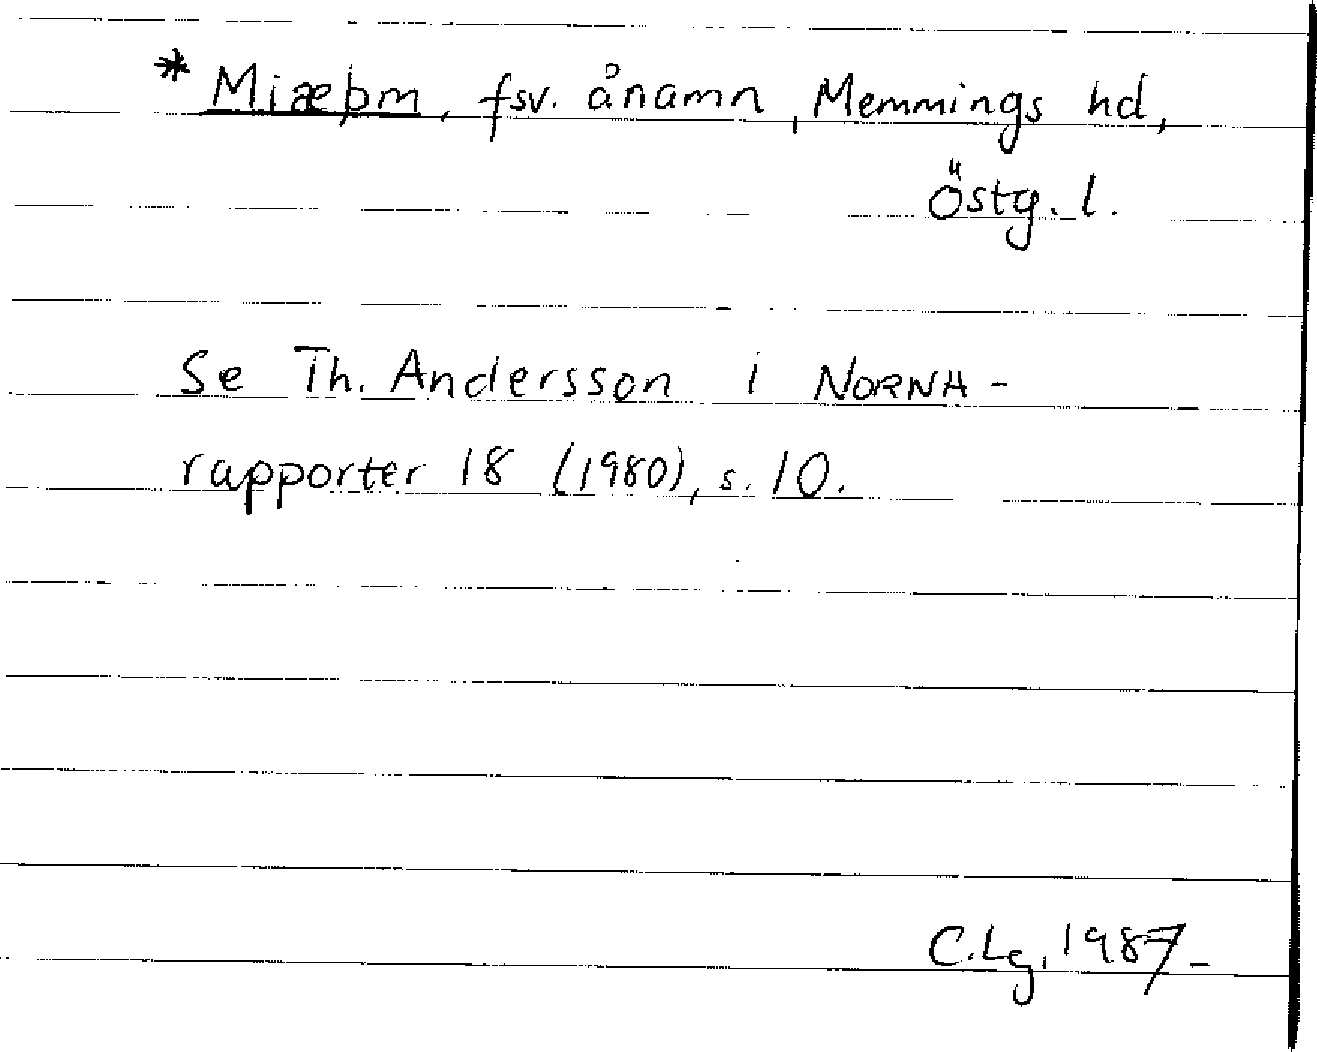 * Miæþm, fsv. ånamn, Memmings hd,
Östg. l.
Se Th. Andersson i NORNA-
rapporter 18 (1980), s. 10.
C.Lg. 1987-